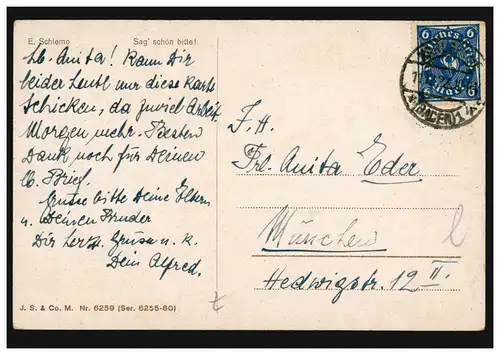 E. Schlemo Sag' schön bitte!
Lb. Anita! Kann Dir
leider heut nur diese Karte
schicken, da zuviel Arbeit.
Morgen mehr. Besten
Dank noch für Deinen
lb. Brief.
Grüsse bitte Deine Eltern
u. Deinen Bruder
Dir herzl. Grüsse u. K.
Dein Alfred.
J. S. & Co. M. Nr. 6259 (Ser. 6255-60)
6 6
F. H.
Frl. Anita Eder
München
Hedwigstr. 12 II.